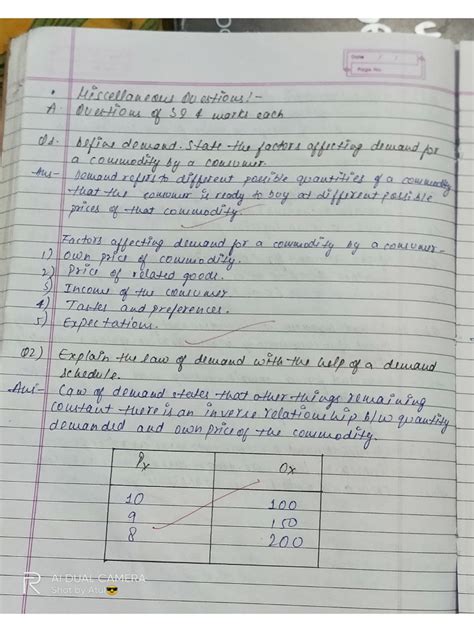 Date / /
Page No.
• Miscellaneous Questions!-
A. Questions of 3 & 4 marks each
Q1. Define demand. State the factors affecting demand for
a commodity by a consumer.
Ans- Demand refers to different possible quantities of a commodity
that the consumer is ready to buy at different possible
prices of that commodity.
Factors affecting demand for a commodity by a consumer-
1) Own price of commodity.
2) Price of related goods.
3) Income of the consumer.
4) Tastes and preferences.
5) Expectations.
Q2) Explain the law of demand with the help of a demand
schedule.
Ans- Law of demand states that other things remaining
constant there is an inverse relationship b/w quantity
demanded and own price of the commodity.
Px Qx
10 100
9 150
8 200
R AI DUAL CAMERA
Shot by Atul 😎